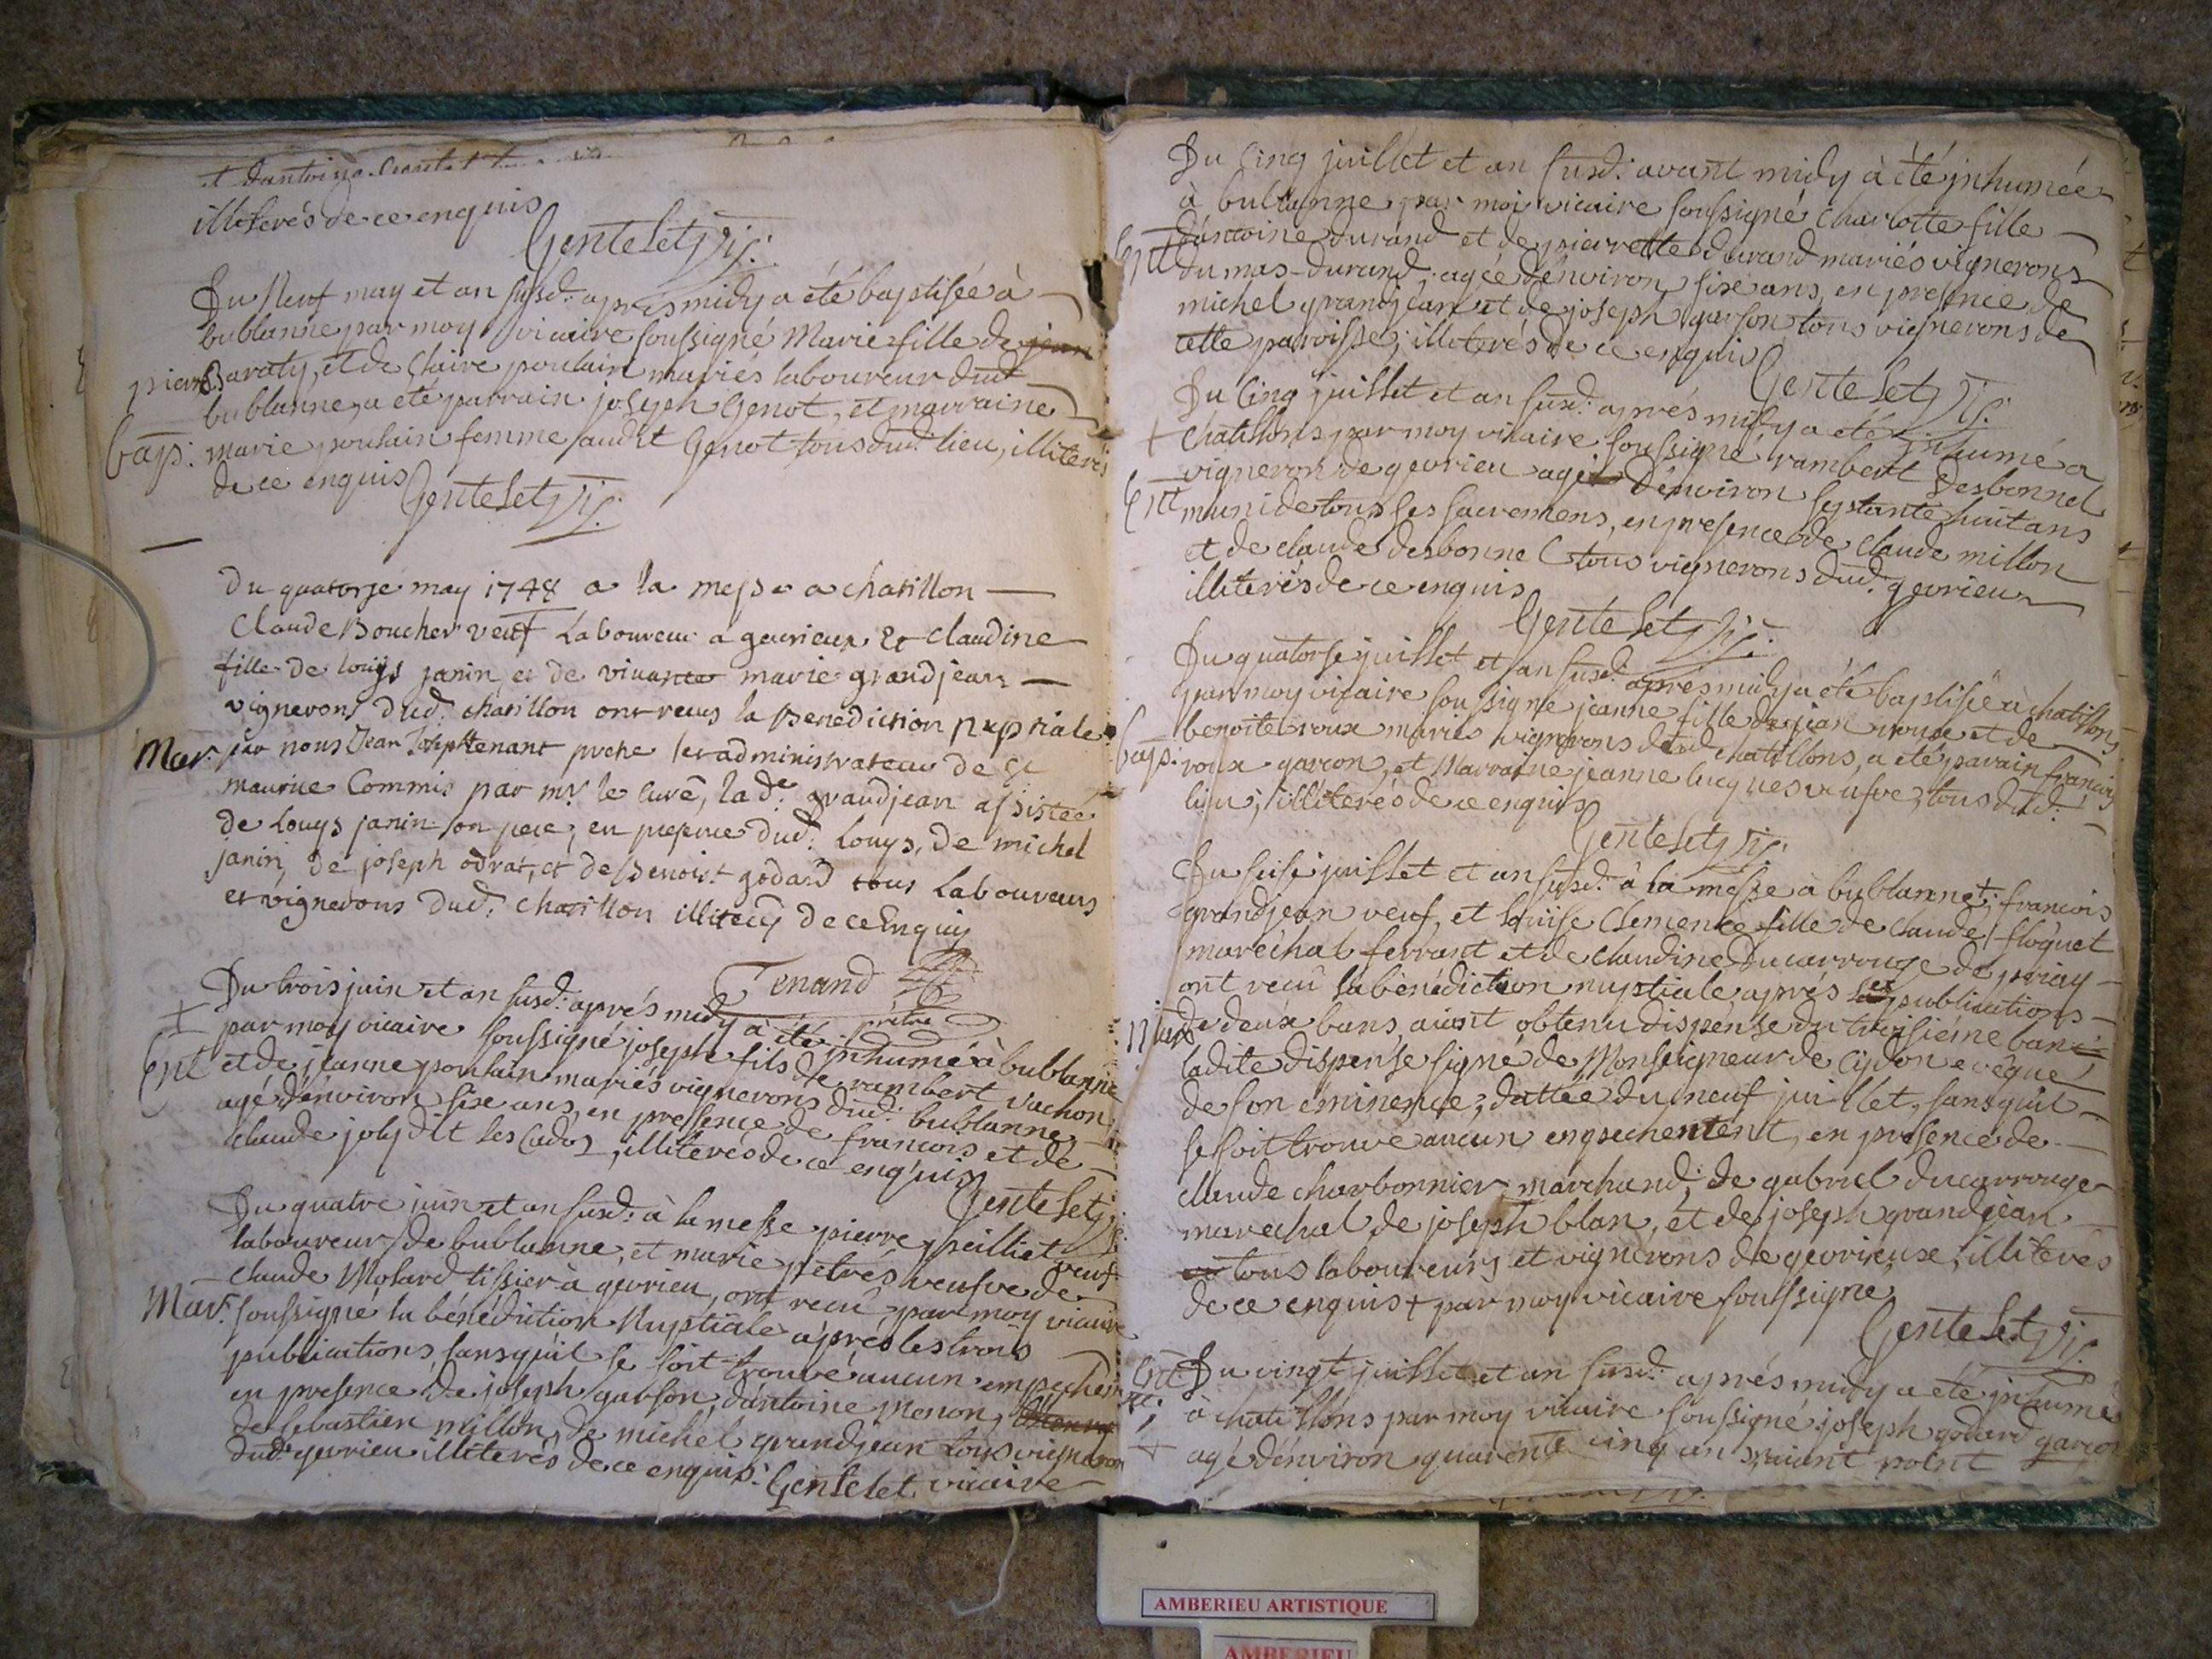 et dantoine
illiterés de ce enquis
Gentelet Vic:
Du Neuf may et an susd: apres midy a été baptisée à
bublanne par moy vicaire soussigné Marie fille de jean
pierre Baraty, et de Claire poulain mariés laboureur dud
bublanne, a été parrain joseph Genot, et marraine
bap: marie poulain femme audit Genot tous dud: lieu, illiterés
de ce enquis Gentelet Vic:
Du quatorze may 1748 a la messe a chatillon
Claude Boucher veuf Laboureur a gevrieux Et claudine
fille de louys janin et de vivante marie grandjean
vignerons dud. chatillon ont recus la Benediction nuptiale
Mar. par nous Jean Joseph tenant pretre et administrateur de St
maurice Commis par mr. le curé, lade. grandjean assistée
de Louys janin son pere, en presence dud. Louys, De michel
janin, De joseph odrat, et De Benoist godard tous Laboureurs
et vignerons Dud. chatillon illiterés De ce Enquis
Tenand
prêtre
Du trois juin et an susd: aprés midy à été inhumé à bublanne
par moy vicaire soussigné joseph fils de rambert vachon
Ent et de jeanne poulain mariés vignerons dud: bublanne
agé d'énviron sixe ans, en pressence de francois et de
claude joly dit les Cados, illiterés de ce enquis
Gentelet Vic:
Du quatre juin et an susd: à la messe pierre peilliet veuf
laboureur de bublanne, et marie petrés veufve de
claude Molard tissier à gevrieu, ont recu par moy vicaire
Mar. soussigné la bénédiction Nuptiale aprés les trois
publications, sans quil se soit trouvé aucun empechem
en presence de joseph garson, d'antoine Menon,
de sebastien millon, de michel grandjean tous vigneron
dud: gevrieu illiterés de ce enquis: Gentelet vicaire
Du Cinq juillet et an susd: avant midy à été jnhumée
à bublanne par moi vicaire soussigné Charlotte fille
Ent d'antoine durand et de pierrette durand mariés vignerons
du mas-durand, agée d'énviron sixe ans, en presence de
michel grandjean et de joseph garson tous vignerons de
cette paroisse, illiterés de ce enquis
Gentelet Vic:
Du Cinq juillet et an susd: aprés midy a été jnhumé a
chatillons par moy vicaire soussigné rambert Desbonnel
vigneron de gevrieu agé d'énviron septante huit ans
Ent muni de tous ses sacremens, en presence de claude millon
et de claude desbonnel tous vignerons dud: gevrieu
illiterés de ce enquis
Gentelet Vic:
Du quatorse juillet et an susd: aprés midy a été baptisée à chatillons
par moy vicaire soussigné jeanne fille de jean roux et de
benoite roux mariés vignerons dud chatillons, a été parain francois
bap: roux garcon, et Marraine jeanne lucques veufve, tous dud:
lieu; illiterés de ce enquis
Gentelet Vic:
Du seise juillet et an susd: à la messe à bublanne + francois
grandjean veuf, et louise Clemence fille de claude floquet
maréchal ferrant et de claudine Ducarrouge de priay
ont recu la bénédiction nuptiale aprés les publications
Mar de deux bans, aiant obtenu dispénse du troisiéme ban
ladite dispense signé de Monseigneur de Cydon evêque
de son éminence; dattée du neuf juillet, sans qu'il
se soit trouvé aucun empechement, en presence de
claude charbonnier marchand; de gabriel ducarrouge
marechal de joseph blan, et de joseph grandjean
tous laboureurs et vignerons de gevrieux, illiterés
de ce enquis + par moy vicaire soussigné
Gentelet Vic:
Ent Du vingt juillet et an susd: aprés midy a été jnhumé
à chatillons par moy vicaire soussigné joseph godard garcon
agé d'énviron quarénte cinq ans, aiant point
AMBERIEU ARTISTIQUE
AMBERIEU